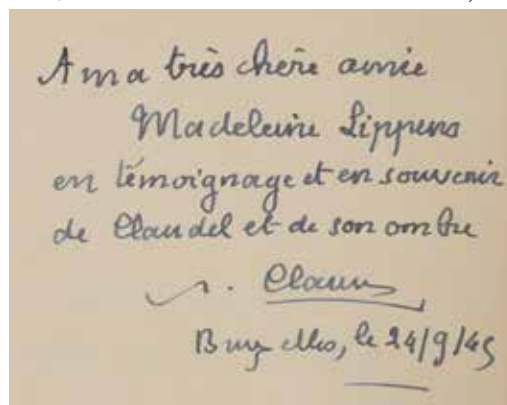 A ma très chère amie
Madeleine Lippens
en témoignage et en souvenir
de Claudel et de son ombre
Bruxelles, le 24/9/45